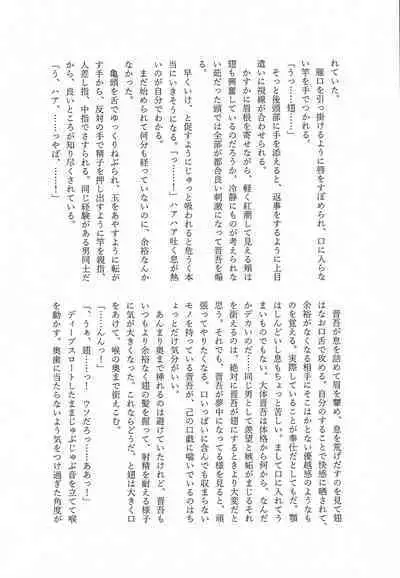 れていた。
　雁口を引っ掛けるように唇をすぼめられ、口に入らな
い竿を手でつかれる。
「うっ……翅……」
　そっと後頭部に手を添えると、返事をするように上目
遣いに視線が合わせられる。
　かすかに眉根を寄せながら、軽く紅潮して見える頬は
翅も興奮しているのだろうか、冷静にものが考えられな
い茹だった頭では全部が都合良い刺激になって晋吾を煽
る。
　早くいけ、と促すようにじゅっと吸われると危うく本
当にいきそうになる。「っ……！」ハアハア吐く息が熱
いのが自分でわかる。
　まだ始められて何分も経っていないのに、余裕なんか
なかった。
　亀頭を舌でゆっくりねぶられ、玉をあやすように転が
す手から、反対の手で精子を押し出すように竿を親指、
人差し指、中指でさすられる。同じ経験がある男同士だ
から、良いところが知り尽くされている。
「う、ハア、……っやば、……！」
　晋吾が息を詰めて眉を顰め、息を荒げだすのを見て翅
はなお口舌で攻める。自分のすることで快感に晒されて、
余裕がなくなる相手にそこはかとない優越感のようなも
のを覚える。実際していることが奉仕だとしてもだ。顎
はしんどいし息もちょっと苦しい。まして口に入れてう
まいものでもない。大体晋吾は体格から何から、なんだ
かデカいのだ……同じ男として羨望と嫉妬がまじるそれ
を銜えるのは、絶対に晋吾が翅にするときより大変だと
思う。それでも、晋吾が夢中になってる様を見ると、頑
張ってやりたくなる。口いっぱいに含んでも収まらない
モノを持っている晋吾が、己の口戯に喘いでいるのはち
ょっとだけ気分がいい。
　あんまり奥まで挿れるのは避けていたけれど、晋吾も
いつもより余裕なく翅の髪を握って、射精を耐える様子
に気が大きくなった。これならどうだ、と翅は大きく口
をあけて、喉の奥まで銜えこむ。
「……んんっ！」
「、うぁ、翅……っ！　ウソだろっ……ああっ！」
　ディープスロートしたままじゅぷじゅぷ音を立てて喉
を動かす。奥歯に当たらないよう気をつけ過ぎた角度が